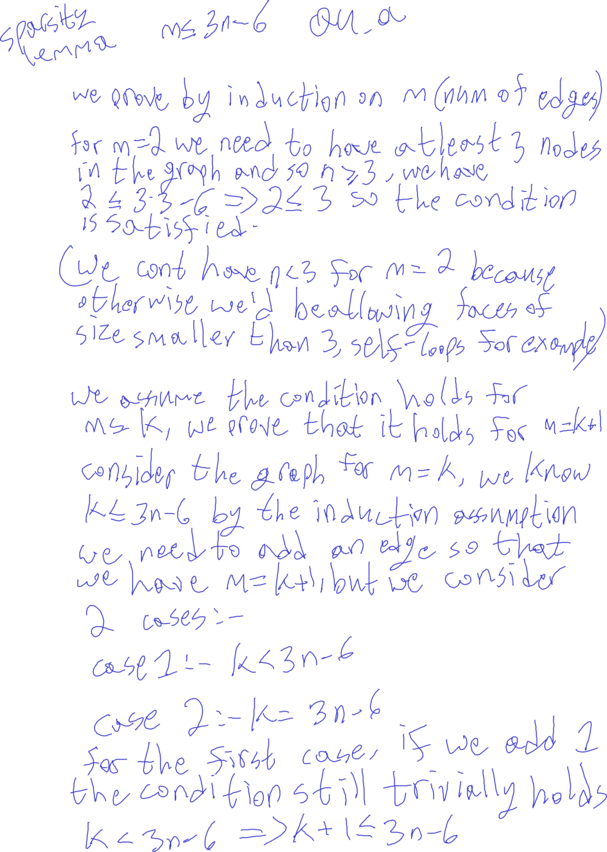 sparsity lemma m≤ 3n-6 Qu_a
we prove by induction on m (num of edges)
for m=2 we need to have atleast 3 nodes
in the graph and so n≥3, we have
2 ≤ 3·3-6 => 2≤ 3 so the condition
is satisfied.
(we cant have n<3 for m=2 because
otherwise we'd be allowing faces of
size smaller than 3, self-loops for example)
we assume the condition holds for
m≤ k, we prove that it holds for m=k+1
consider the graph for m=k, we know
k≤ 3n-6 by the induction assumption
we need to add an edge so that
we have m=k+1, but we consider
2 cases:-
case 1:- k<3n-6
case 2:- k= 3n-6
for the first case, if we add 1
the condition still trivially holds
k<3n-6 => k+1≤3n-6